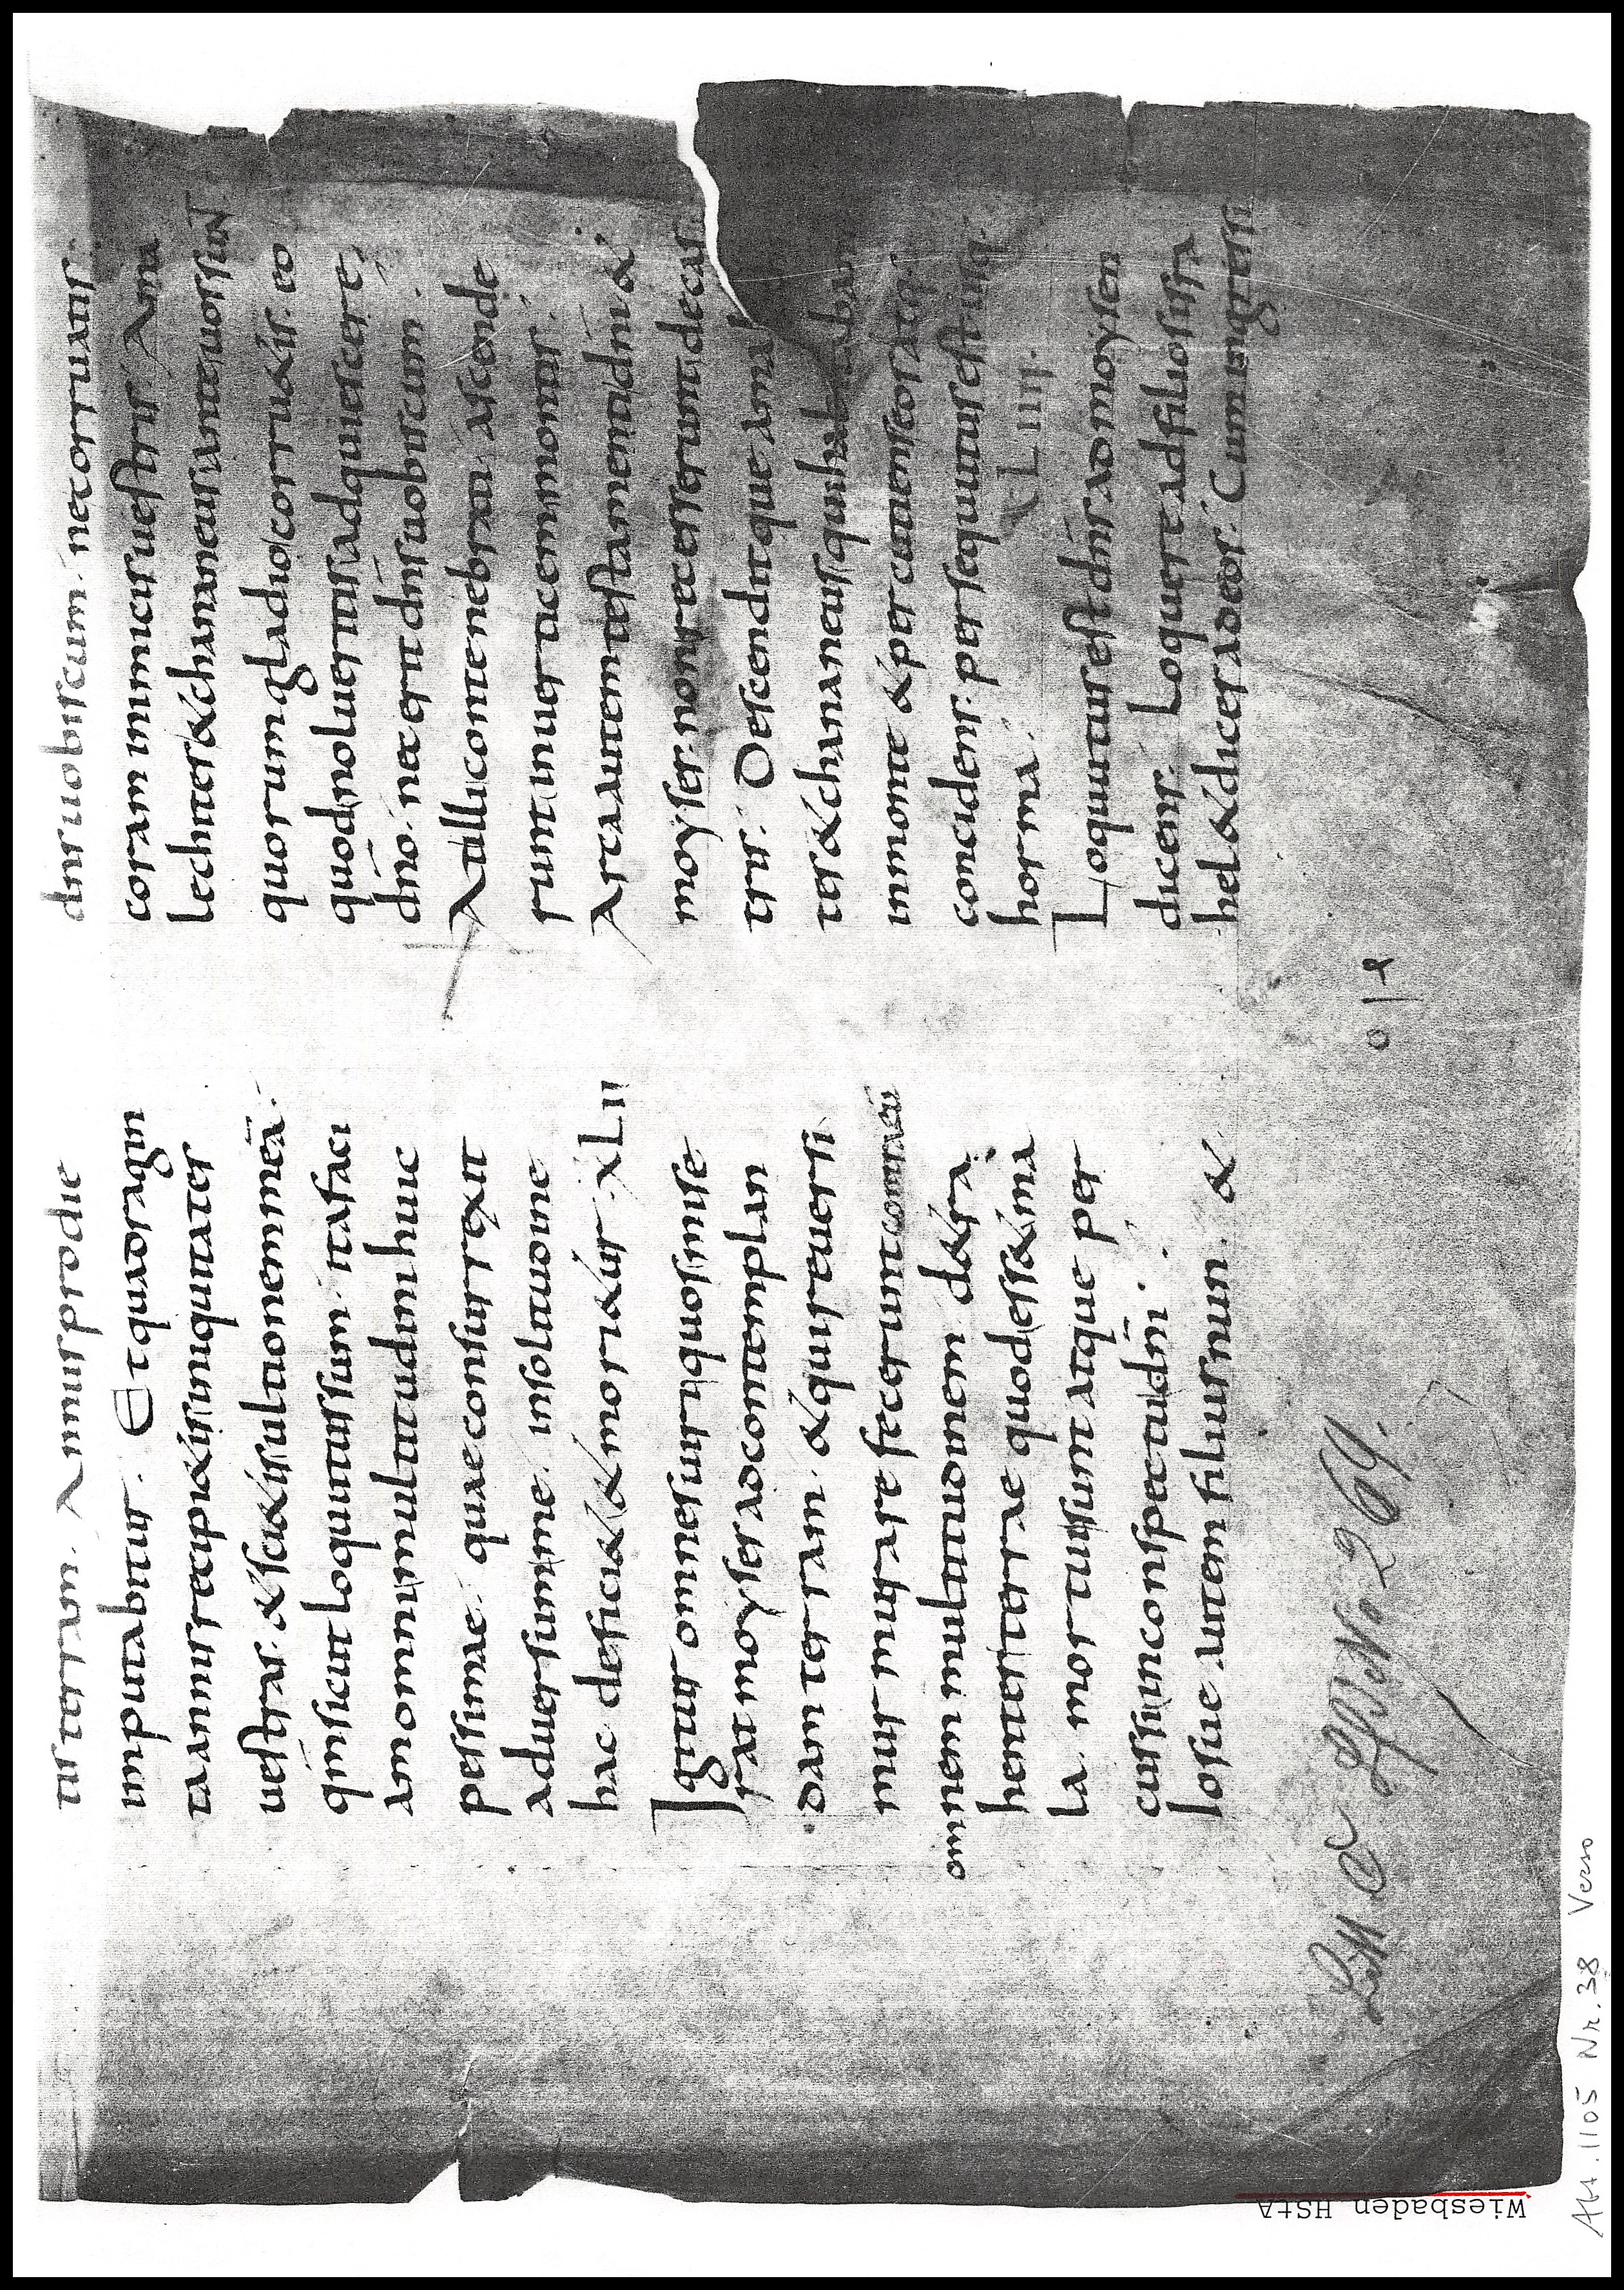 tis terram. Annus pro die
imputabitur. Et quadragin
ta annis recipietis iniquitates
vestras. & scietis ultionem meā.
qm̄ sicut locutus sum. ita faci
am omni multitudini huic
pessimae. quae consurrexit
adversum me. in solitudine
hac deficiet & morietur. XLII
Igitur omnes viri quos mise
rat moyses ad contemplan
dam terram. & qui reversi
murmurare fecerunt contra eū
omnem multitudinem. detra
hentes terrae quod esset ma
la. mortui sunt atque per
cussi in conspectu dn̄i.
Iosue autem filius nun. &
dn̄s vobiscum. ne corruatis
coram inimicis vestris. Ama
lechites & chananeus ante vos sunt
quorum gladio corruetis. eo
quod nolueritis adquiescere
dn̄o. nec erit dn̄s vobiscum.
At illi contenebrati ascende
runt in verticem montis.
Arca autem testamenti dn̄i &
moyses. non recesserunt de cas
tris. Descenditque ama
tes & chananeus qui hab
in monte & percutiens eos atq;
concidens. persequutus est usq;
horma. XLIII.
Loquutus est dn̄s ad moysen
dicens. Loquere ad filios isra
hel & dices ad eos. Cum ingressi
o | e
No. 264.
Abt. 1105 Nr. 38 Verso
Wiesbaden HStA